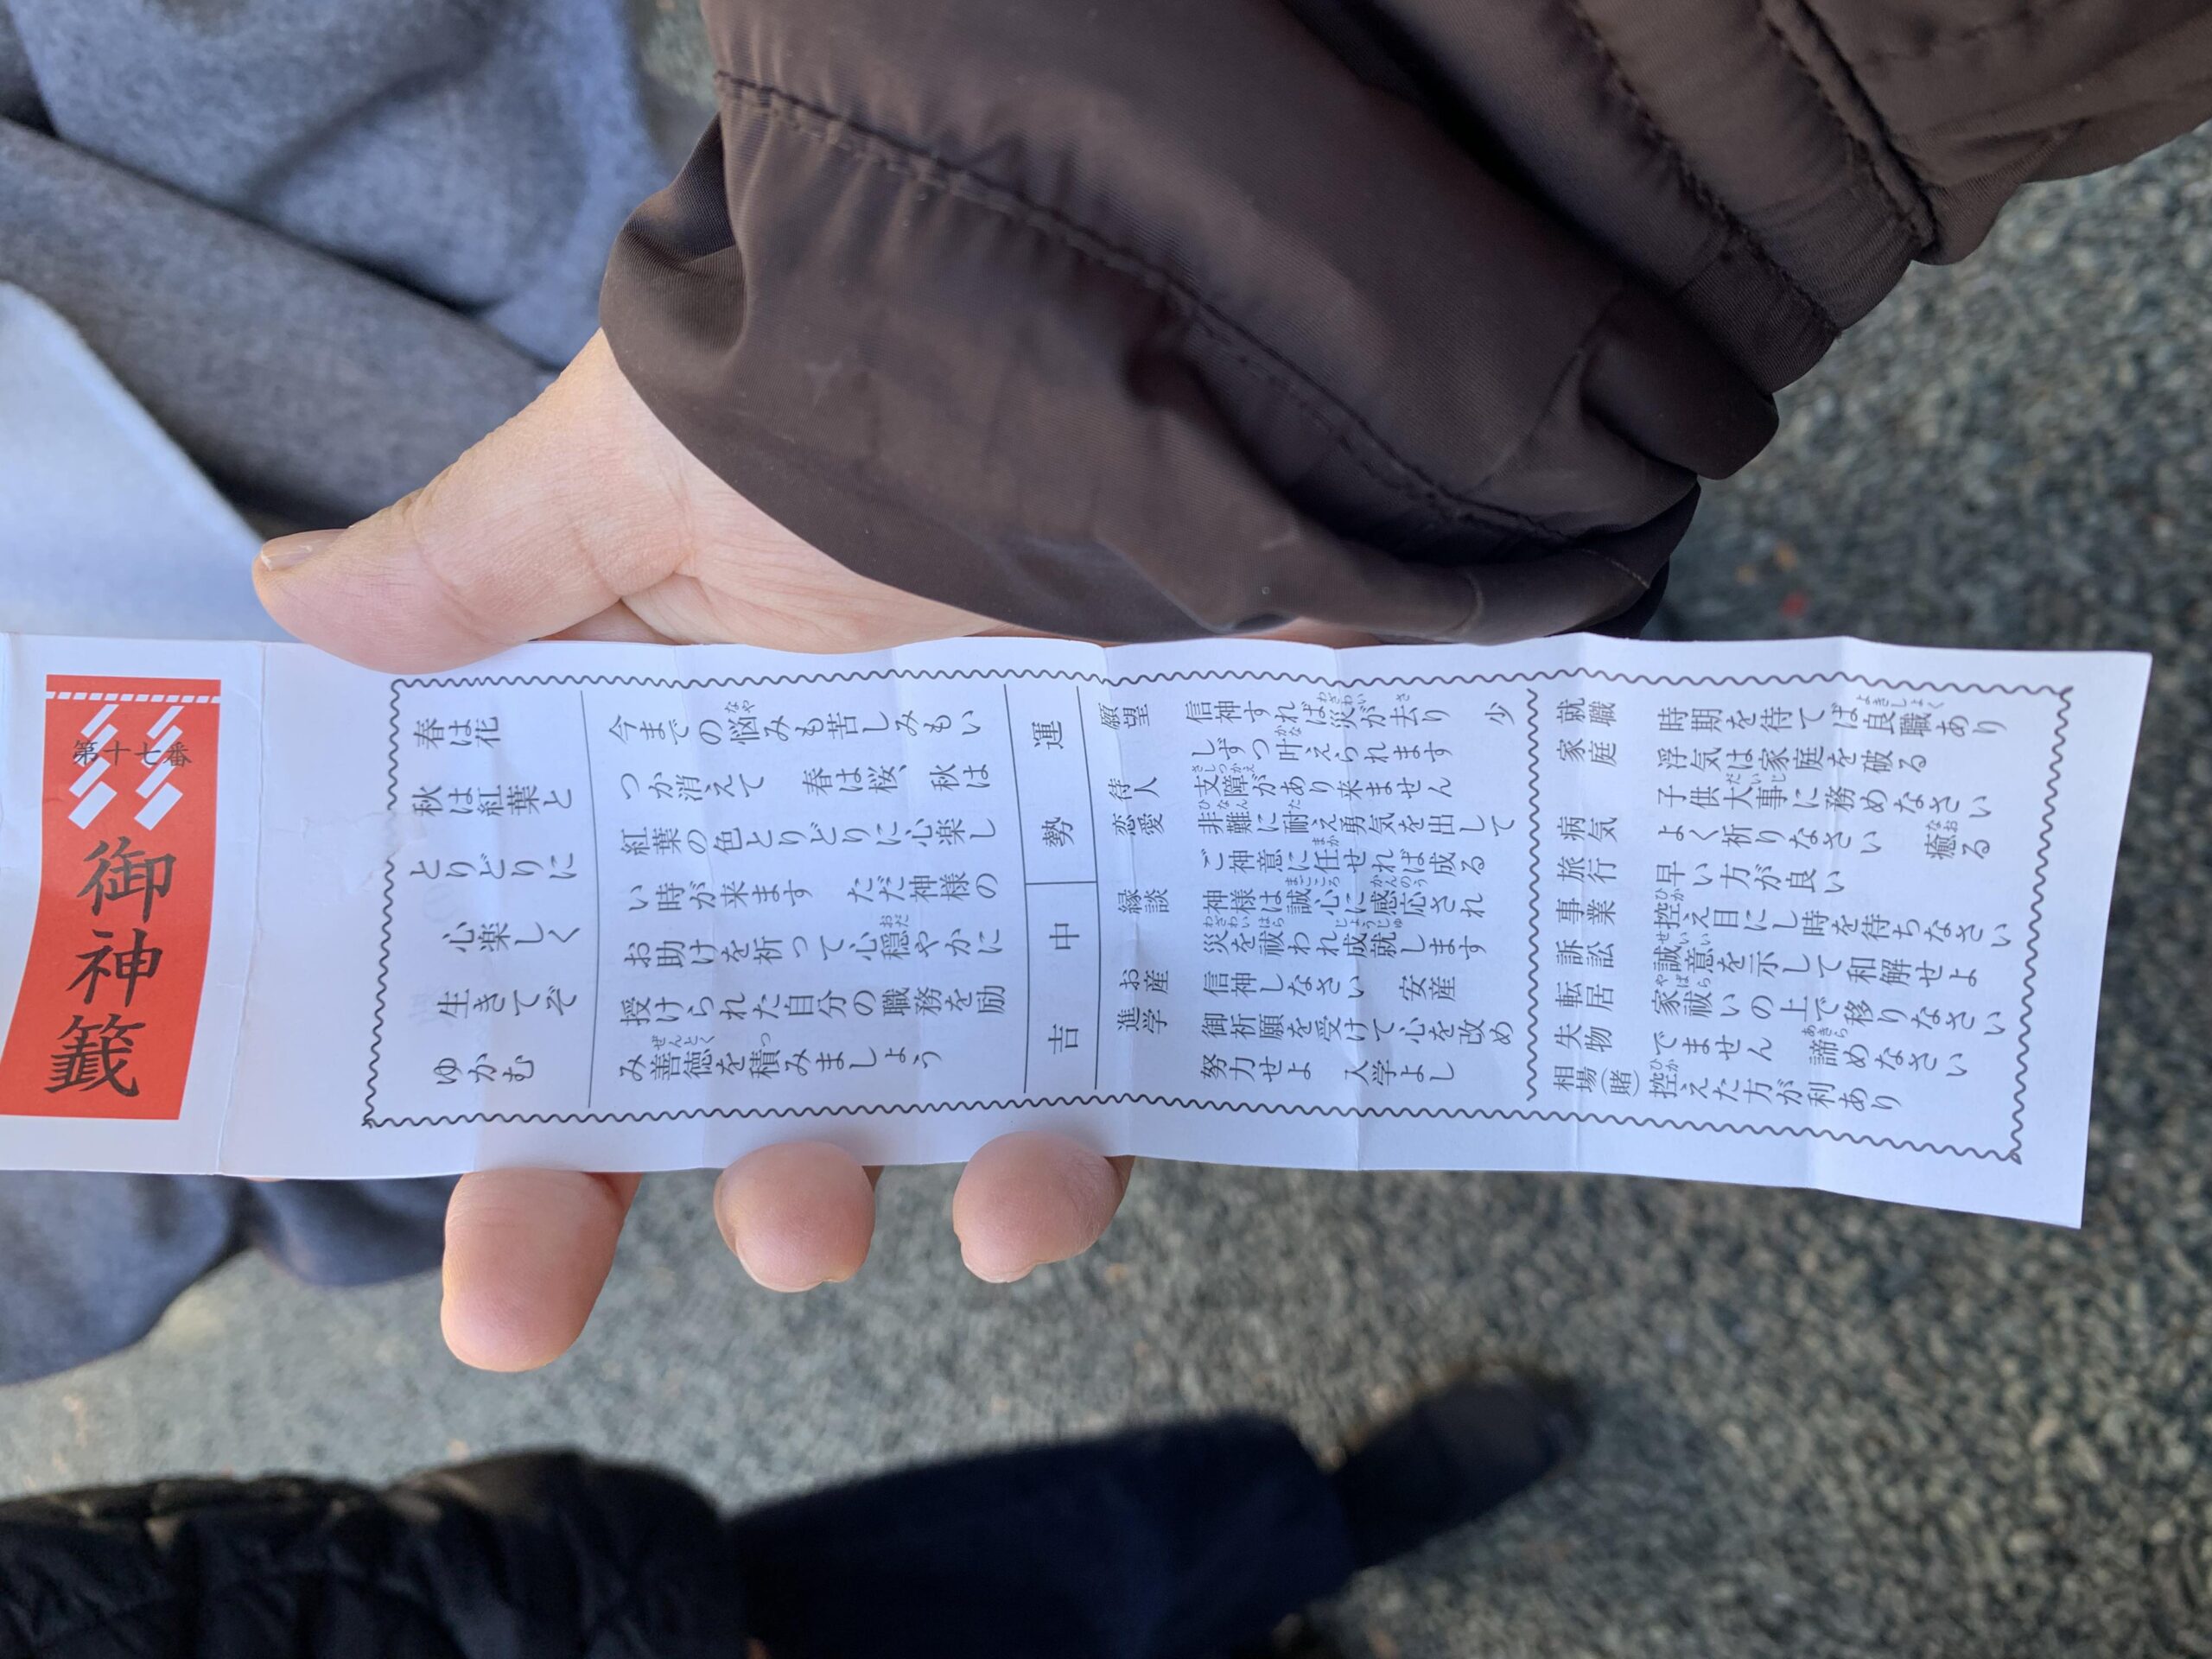 第十七番
御神籤
春は花
秋は紅葉と
とりどりに
心楽しく
生きてぞ
ゆかむ
今までの悩みも苦しみもい
つか消えて　春は桜、秋は
紅葉の色とりどりに心楽し
い時が来ます　ただ神様の
お助けを祈って心穏やかに
授けられた自分の職務を励
み善徳を積みましょう
運勢
中吉
願望　信神すれば災が去り　少
しずつ叶えられます
待人　支障があり来ません
恋愛　非難に耐え勇気を出して
ご神意に任せれば成る
縁談　神様は誠心に感応され
災を祓われ成就します
お産　信神しなさい　安産
進学　御祈願を受けて心を改め
努力せよ　入学よし
就職　時期を待てば良職あり
家庭　浮気は家庭を破る
子供大事に務めなさい
病気　よく祈りなさい　癒る
旅行　早い方が良い
事業　控え目にし時を待ちなさい
訴訟　誠意を示して和解せよ
転居　家祓いの上で移りなさい
失物　でません　諦めなさい
相場(賭)　控えた方が利あり